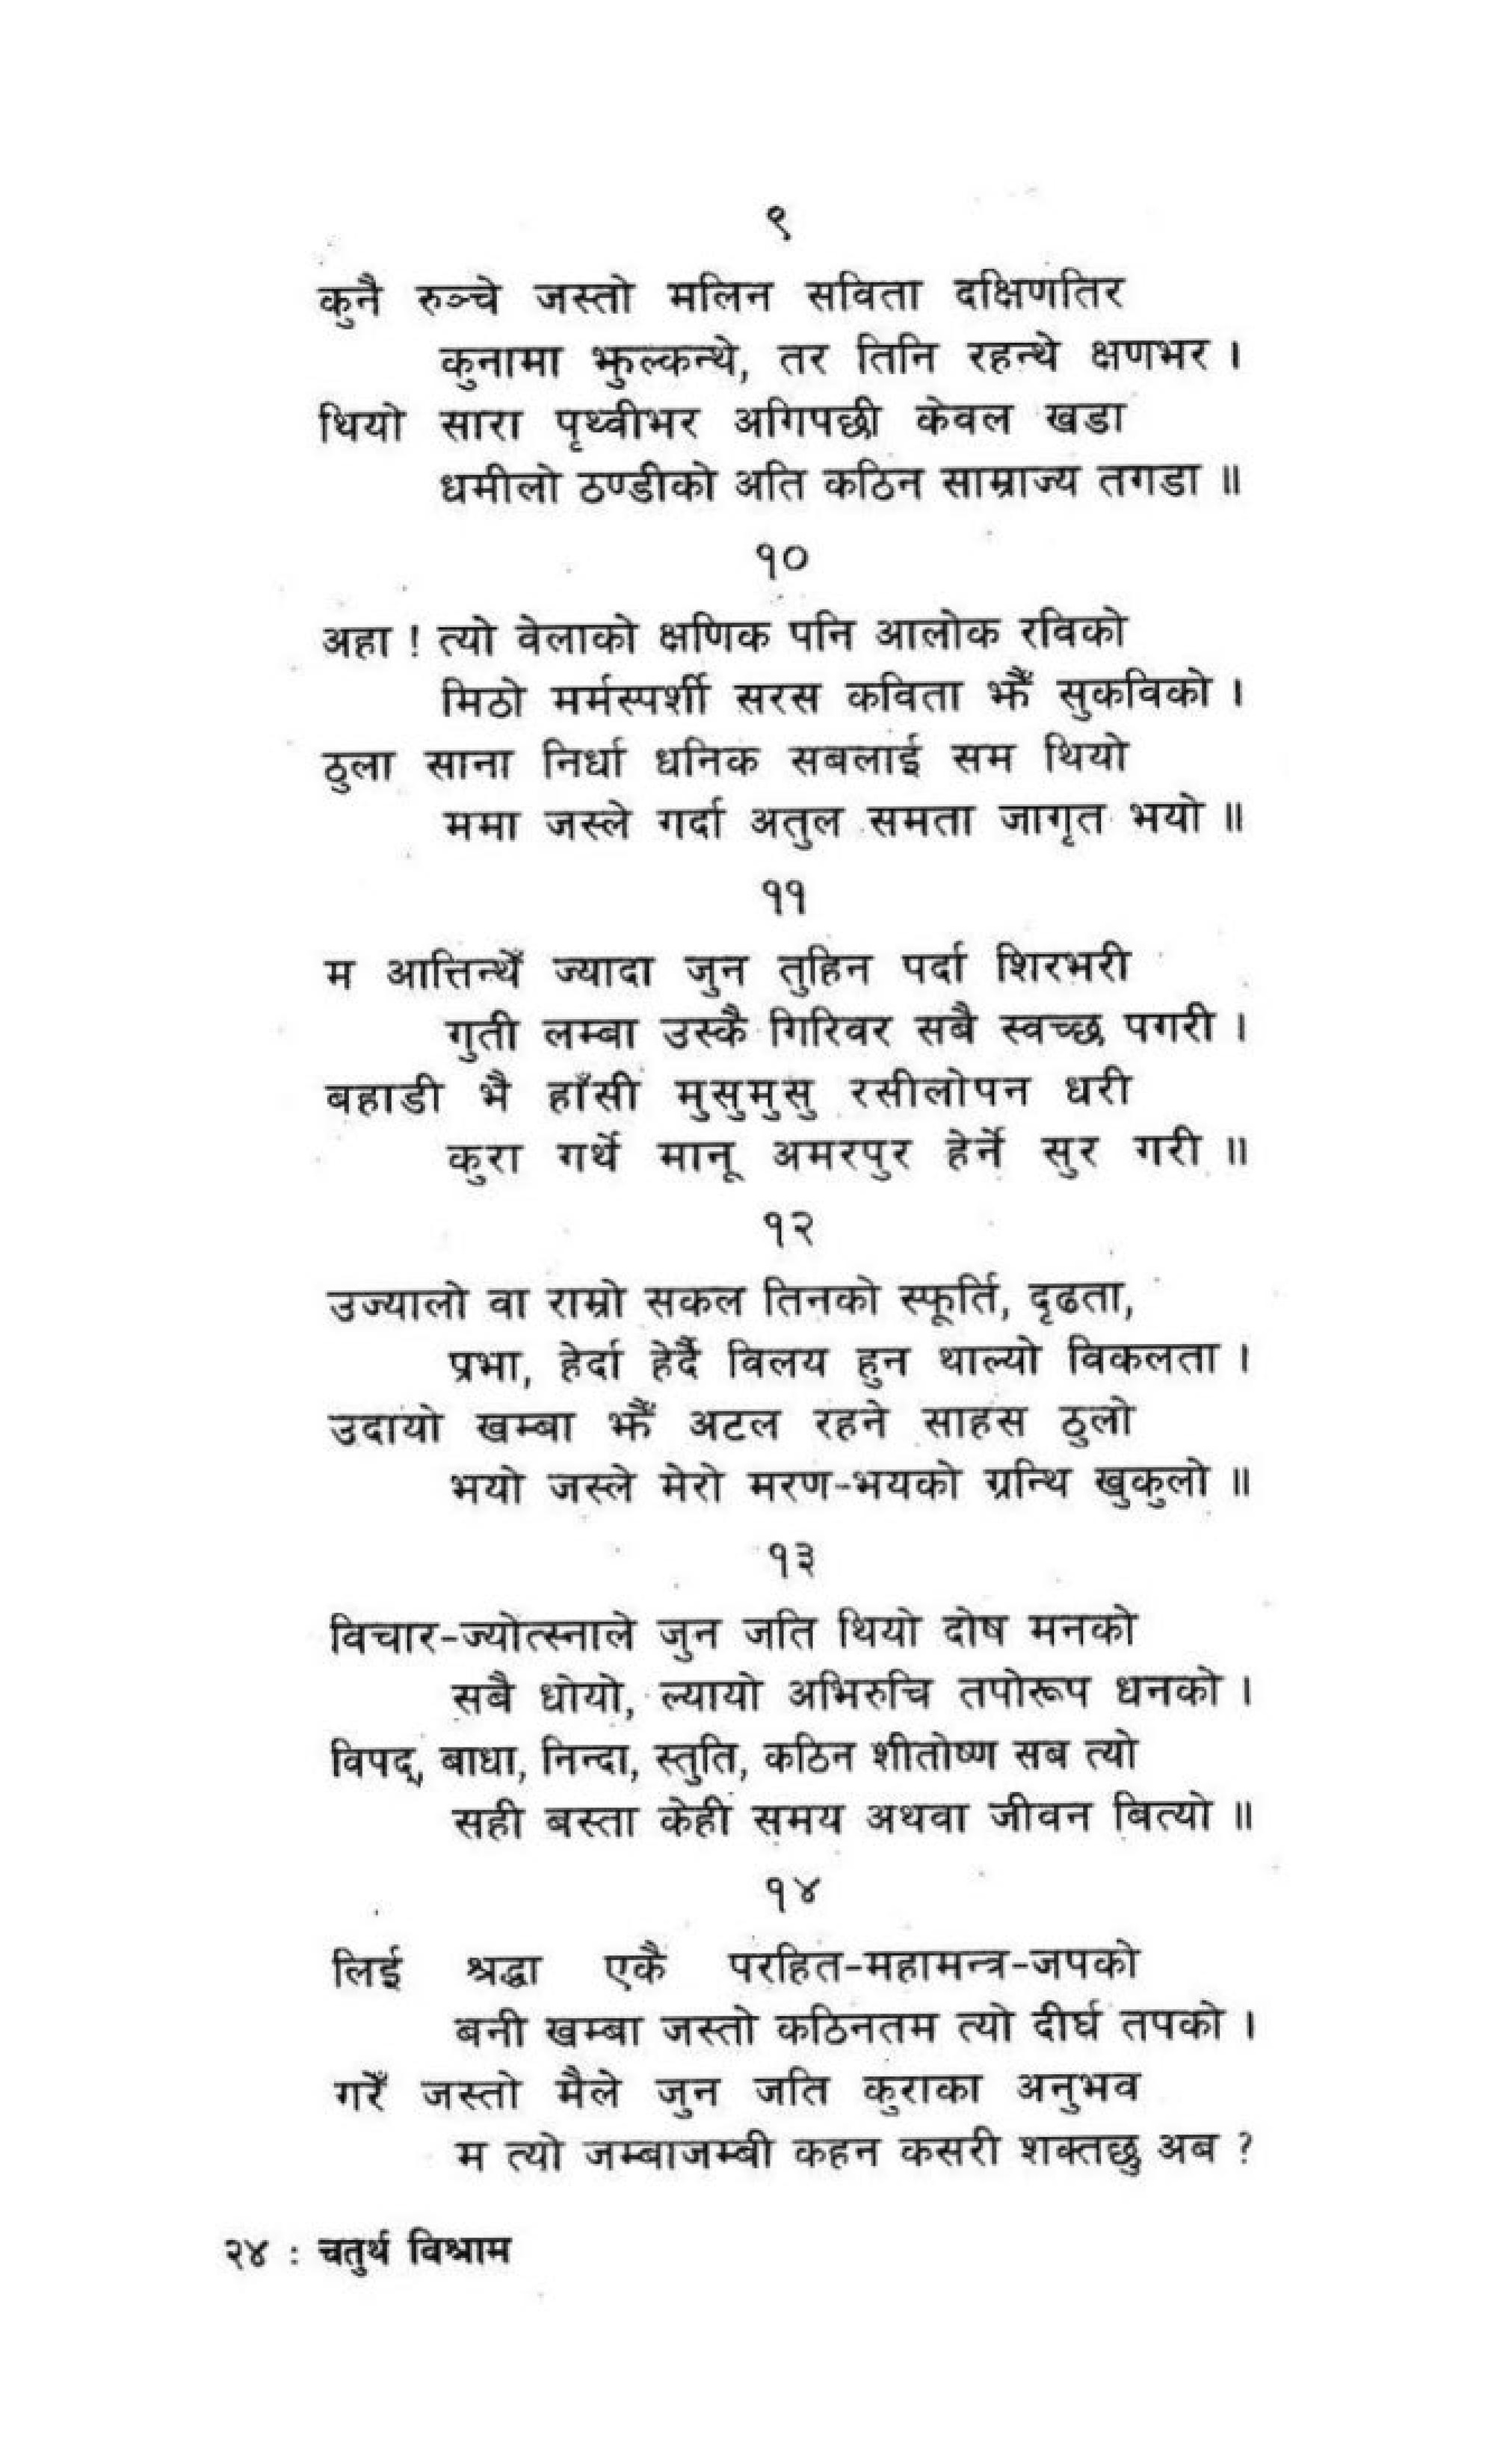 ९
कुनै रुञ्चे जस्तो मलिन सविता दक्षिणतिर
कुनामा झुल्कन्थे, तर तिनि रहन्थे क्षणभर ।
थियो सारा पृथ्वीभर अगिपछी केवल खडा
धमीलो ठण्डीको अति कठिन साम्राज्य तगडा ॥
१०
अहा ! त्यो वेलाको क्षणिक पनि आलोक रविको
मिठो मर्मस्पर्शी सरस कविता झैँ सुकविको ।
ठुला साना निर्धा धनिक सबलाई सम थियो
ममा जस्ले गर्दा अतुल समता जागृत भयो ॥
११
म आत्तिन्थेँ ज्यादा जुन तुहिन पर्दा शिरभरी
गुती लम्बा उस्कै गिरिवर सबै स्वच्छ पगरी ।
बहाडी भै हाँसी मुसुमुसु रसीलोपन धरी
कुरा गर्थे मानू अमरपुर हेर्ने सुर गरी ॥
१२
उज्यालो वा राम्रो सकल तिनको स्फूर्ति, दृढता,
प्रभा, हेर्दा हेर्दै विलय हुन थाल्यो विकलता ।
उदायो खम्बा झैँ अटल रहने साहस ठुलो
भयो जस्ले मेरो मरण-भयको ग्रन्थि खुकुलो ॥
१३
विचार-ज्योत्स्नाले जुन जति थियो दोष मनको
सबै धोयो, ल्यायो अभिरुचि तपोरूप धनको ।
विपद्, बाधा, निन्दा, स्तुति, कठिन शीतोष्ण सब त्यो
सही बस्ता केही समय अथवा जीवन बित्यो ॥
१४
लिई श्रद्धा एकै परहित-महामन्त्र-जपको
बनी खम्बा जस्तो कठिनतम त्यो दीर्घ तपको ।
गरेँ जस्तो मैले जुन जति कुराका अनुभव
म त्यो जम्बाजम्बी कहन कसरी शक्तछु अब ?
२४ : चतुर्थ विश्राम